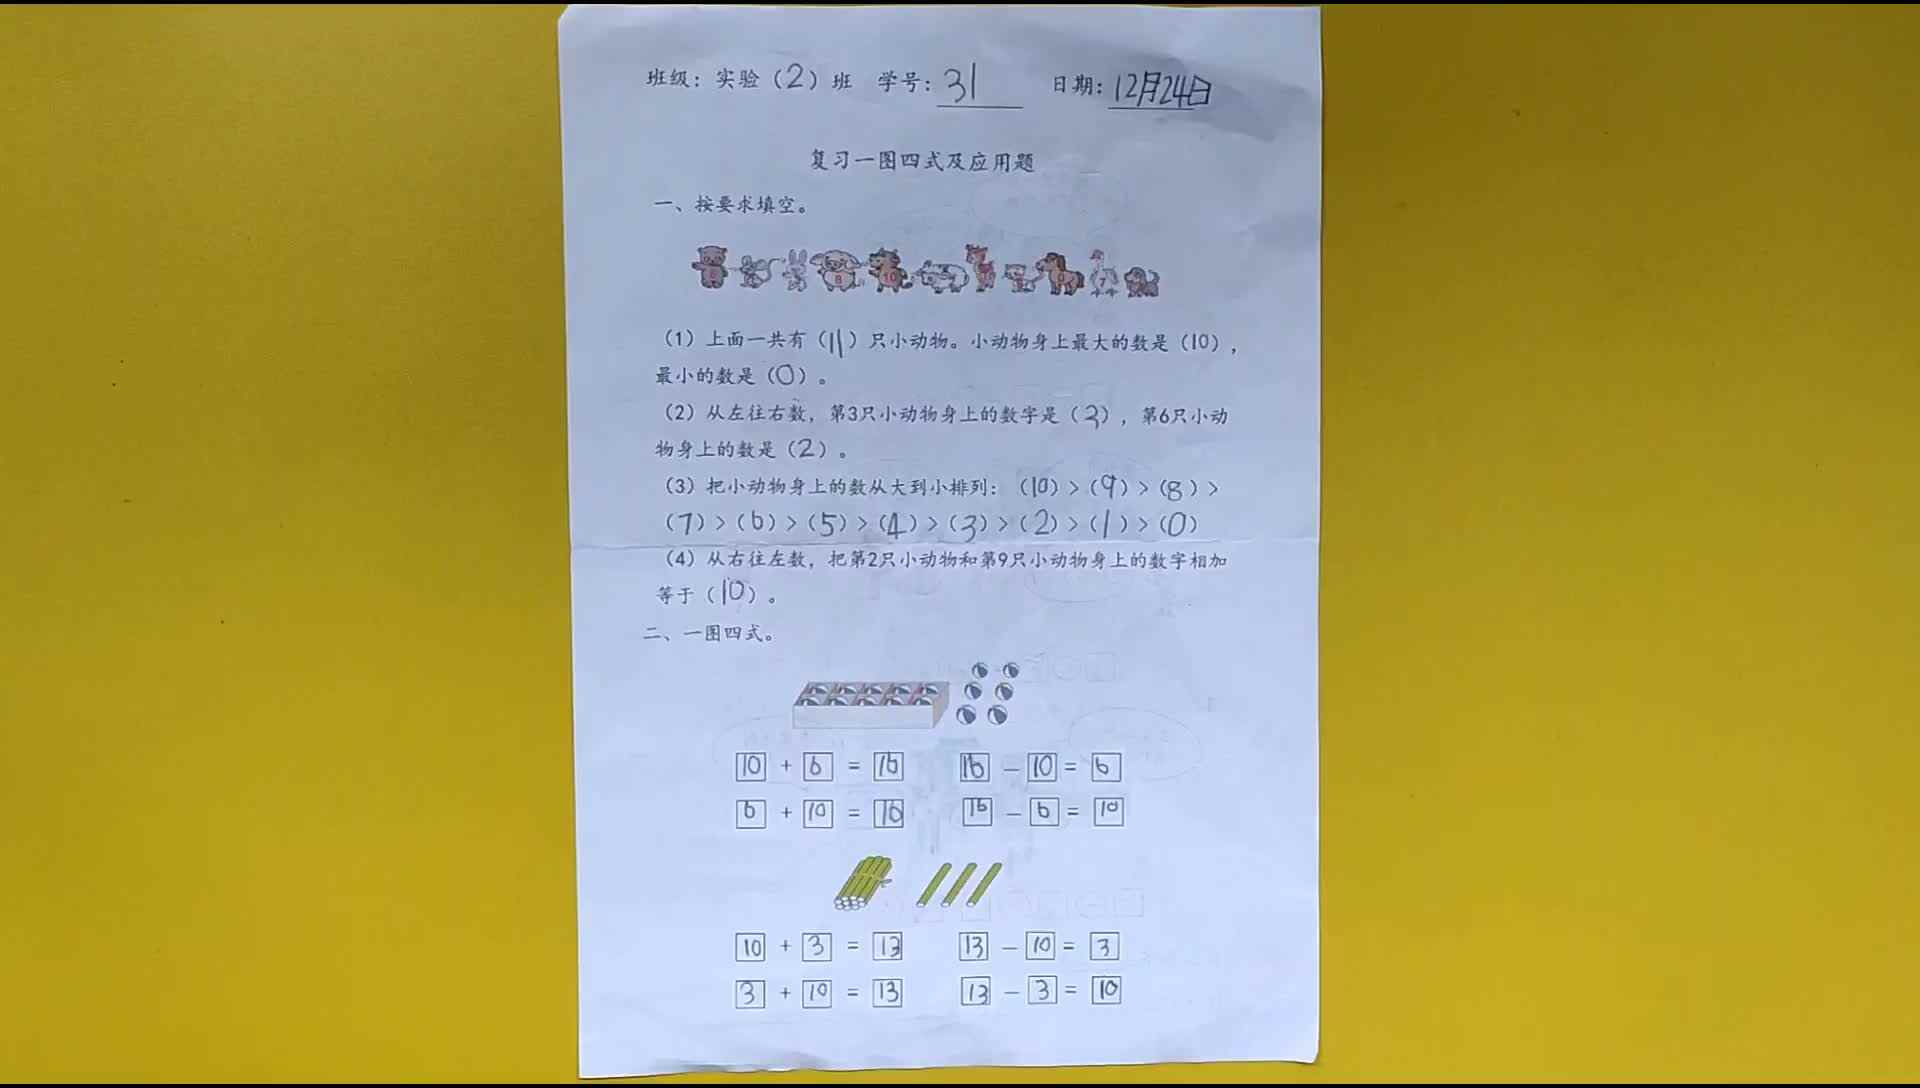 班级：实验（2）班 学号：31 日期：12月24日
复习一图四式及应用题
一、按要求填空。
8 10 7
（1）上面一共有（11）只小动物。小动物身上最大的数是（10），
最小的数是（0）。
（2）从左往右数，第3只小动物身上的数字是（3），第6只小动
物身上的数是（2）。
（3）把小动物身上的数从大到小排列：（10）>（9）>（8）>
（7）>（6）>（5）>（4）>（3）>（2）>（1）>（0）
（4）从右往左数，把第2只小动物和第9只小动物身上的数字相加
等于（10）。
二、一图四式。
10 + 6 = 16 16 - 10 = 6
6 + 10 = 16 16 - 6 = 10
10 + 3 = 13 13 - 10 = 3
3 + 10 = 13 13 - 3 = 10